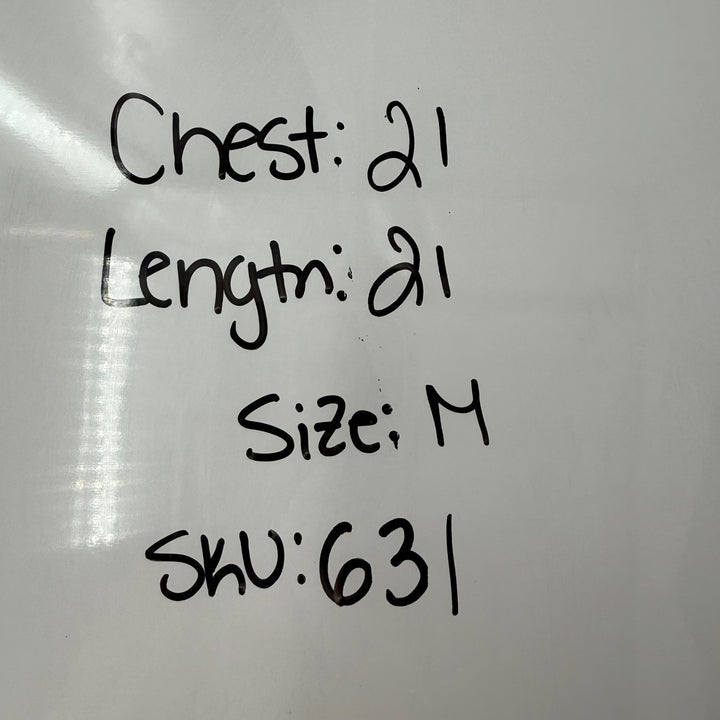 Chest: 21
Length: 21
Size: M
SKU: 631